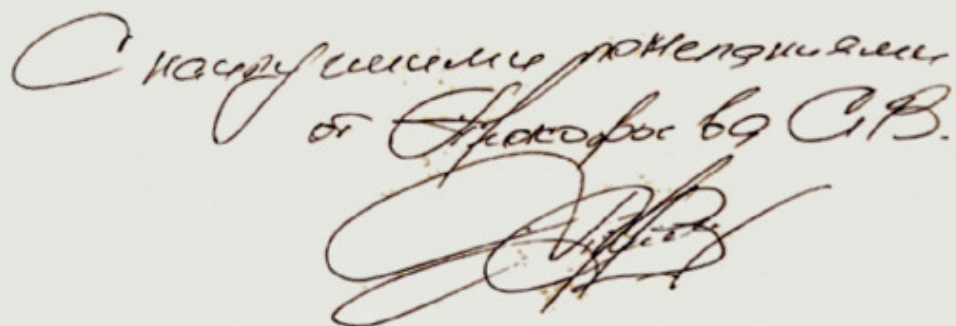 С наилучшими пожеланиями
от Прокофьева С.В.